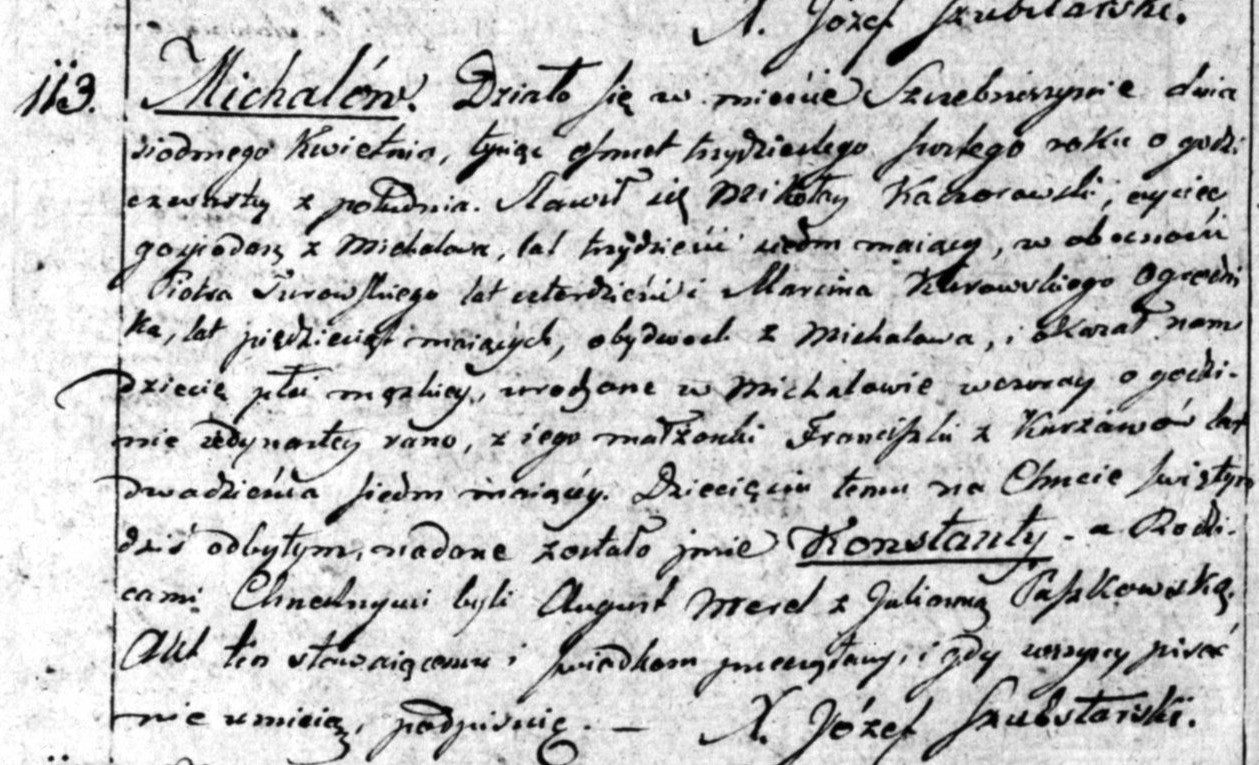 X. Józef Szubstarski.
113. Michalów. Działo się w mieście Szczebrzeszynie dnia
siodmego Kwietnia, tysiąc osmset trzydziestego szostego roku o godzi
czwartey z południa. Stawił się Mikołay Kaczorowski, oyciec
gospodarz z Michalowa, lat trzydzieści siedm maiący, w obecności
Piotra Turowskiego lat czterdzieści i Marcina Kurowskiego Ogrodni
ka, lat pięćdziesiąt maiących, obydwoch z Michalowa, i okazał nam
dziecię płci męzkiey, urodzone w Michalowie wczoray o godzi-
nie jedynastey rano, z iego małżonki Franciszki z Kurzawów lat
dwadzieścia siedm maiącey. Dziecięciu temu na Chrzcie świętym
dziś odbytym, nadane zostało imie Konstanty - a Rodzi-
cami Chrzestnymi byli August Merel z Julianną Paszkowską.
Akt ten stawaiącemu i świadkom przeczytany, i gdy wszyscy pisać
nie umieią, podpisuię. — X. Józef Szubstarski.